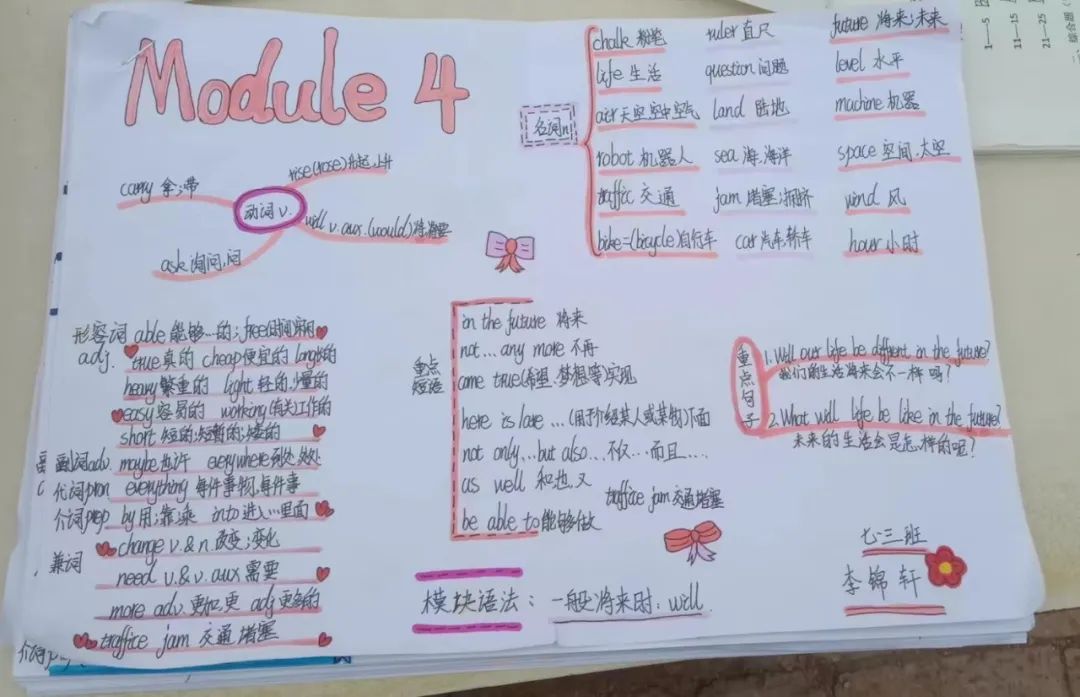 Module 4
carry 拿;带
rise(rose)升起,上升
动词 v.
will v.aux.(would)将,将要
ask 询问,问
名词n
chalk 粉笔 ruler 直尺 future 将来;未来
life 生活 question 问题 level 水平
air 天空,空中,空气 land 陆地 machine 机器
robot 机器人 sea 海,海洋 space 空间,太空
traffic 交通 jam 堵塞;拥挤 wind 风
bike=(bicycle)自行车 car 汽车,轿车 hour 小时
形容词 able 能够…的; free
adj. true 真的 cheap 便宜的 long
heavy 繁重的 light 轻的,
easy 容易的 working 工作的
short 短的;短暂的;矮的
副词adv. maybe 也许 everywhere 到处,处处
代词pron everything 每件事物,每件事
介词prep by 用;靠;乘 into 进入…里面
兼词 change v.&n.改变;变化
need v.&v.aux 需要
more adv.更加,更 adj 更多的
traffice jam 交通堵塞
重点
短语
in the future 将来
not...any more 不再
come true(希望、梦想等)实现
here is lare ...(用于介绍某人或某物)下面
not only...but also...不仅…而且…
as well 和,也,又
traffice jam 交通堵塞
be able to 能够做
重点句子
1.Will our life be diffrent in the future?
我们的生活将来会不一样吗?
2.What will life be like in the future?
未来的生活会是怎样的呢?
模块语法: 一般将来时:will
七.三班
李锦轩
1—5
11—15
21—25